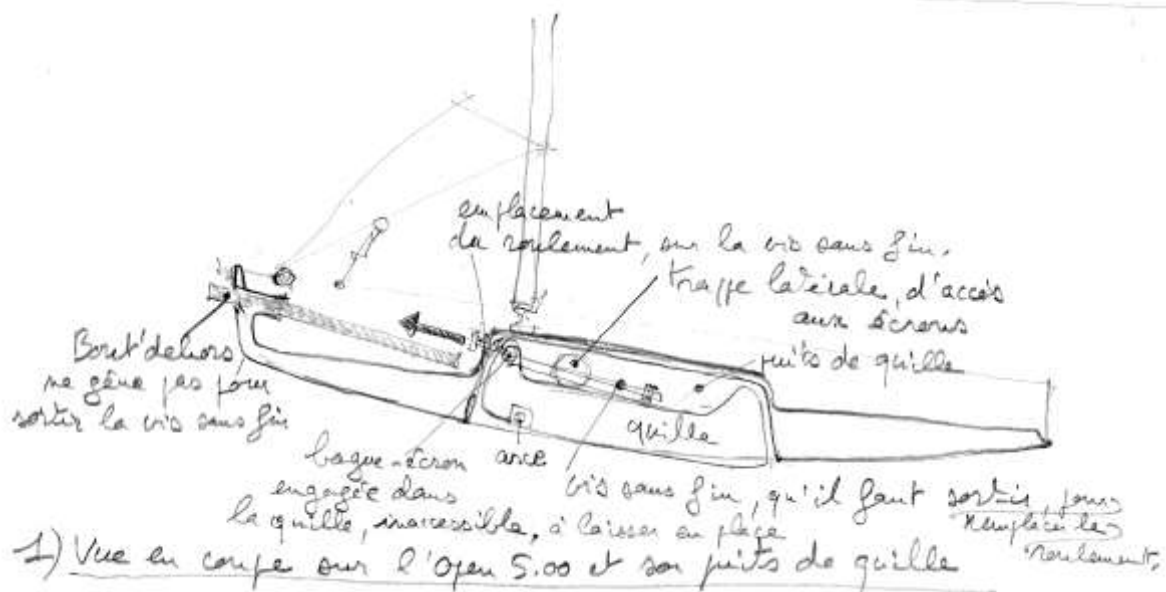 emplacement
du roulement, sur la vis sans fin.
trappe latérale, d'accès
aux écrous
puits de quille
Bout'dehors
ne gêne pas pour
sortir la vis sans fin
quille
axe
bague-écrou
engagée dans
la quille, inaccessible, à laisser en place
vis sans fin, qu'il faut sortir, pour
remplacer le
roulement.
1) Vue en coupe sur l'Open 5.00 et son puits de quille